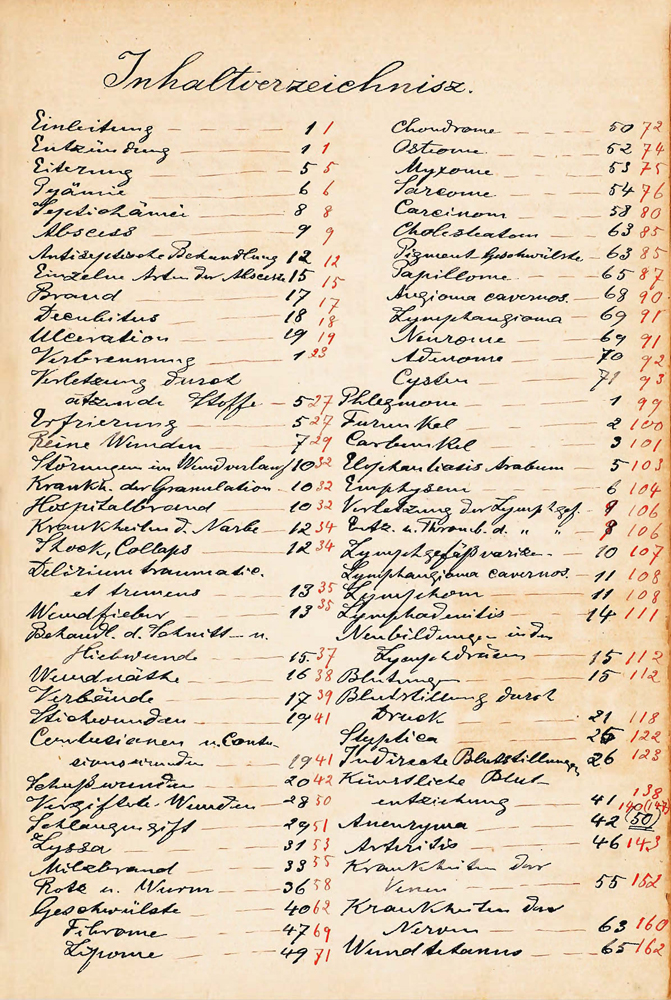 Inhaltverzeichnisz.
Einleitung 1 1
Entzündung 1 1
Eiterung 5 5
Pyämie 6 6
Septichämie 8 8
Abscess 9 9
Antiseptische Behandlung 12 12
Einzelne Arten der Abscesse 15 15
Brand 17 17
Decubitus 18 18
Ulceration 19 19
Verbrennung 1 23
Verletzung durch
ätzende Stoffe 5 27
Erfrierung 5 27
Reine Wunden 7 29
Störungen im Wundverlauf 10 32
Krankh. der Granulation 10 32
Hospitalbrand 10 32
Krankheiten d. Narbe 12 34
Shock, Collaps 12 34
Delirium traumatic.
et tremens 13 35
Wundfieber 13 35
Behandl. d. Schnitt- u.
Hiebwunde 15 37
Wundnäthe 16 38
Verbände 17 39
Stichwunden 19 41
Contusionen u. Contu-
sionswunden 19 41
Schußwunden 20 42
Vergiftete Wunden 28 50
Schlangengift 29 51
Lyssa 31 53
Milzbrand 33 55
Rotz u. Wurm 36 58
Geschwülste 40 62
Fibrome 47 69
Lipome 49 71
Chondrome 50 72
Osteome 52 74
Myxome 53 75
Sarcome 54 76
Carcinom 58 80
Cholesteatom 63 85
Pigment Geschwülste 63 85
Papillome 65 87
Angioma cavernos. 68 90
Lymphangioma 69 91
Neurome 69 91
Adenome 70 92
Cysten 71 93
Phlegmone 1 99
Furunkel 2 100
Carbunkel 3 101
Elephantiasis Arabum 5 103
Emphysem 6 104
Verletzung der Lymphgef. 106
Entz. u. Thromb. d. " " 106
Lymphgefäßvarixen 10 107
Lymphangioma cavernos. 11 108
Lymphom 11 108
Lymphadenitis 14 111
Neubildungen in den
Lymphdrüsen 15 112
Blutungen 15 112
Blutstillung durch
Druck 21 118
Styptica 25 122
Indirecte Blutstillungen 26 123
Künstliche Blut-
entziehung 41 138
Aneuryma 42 140 (147) (50)
Arteritis 46 143
Krankheiten der
Venen 55 152
Krankheiten der
Nerven 63 160
Wundtetanus 65 162